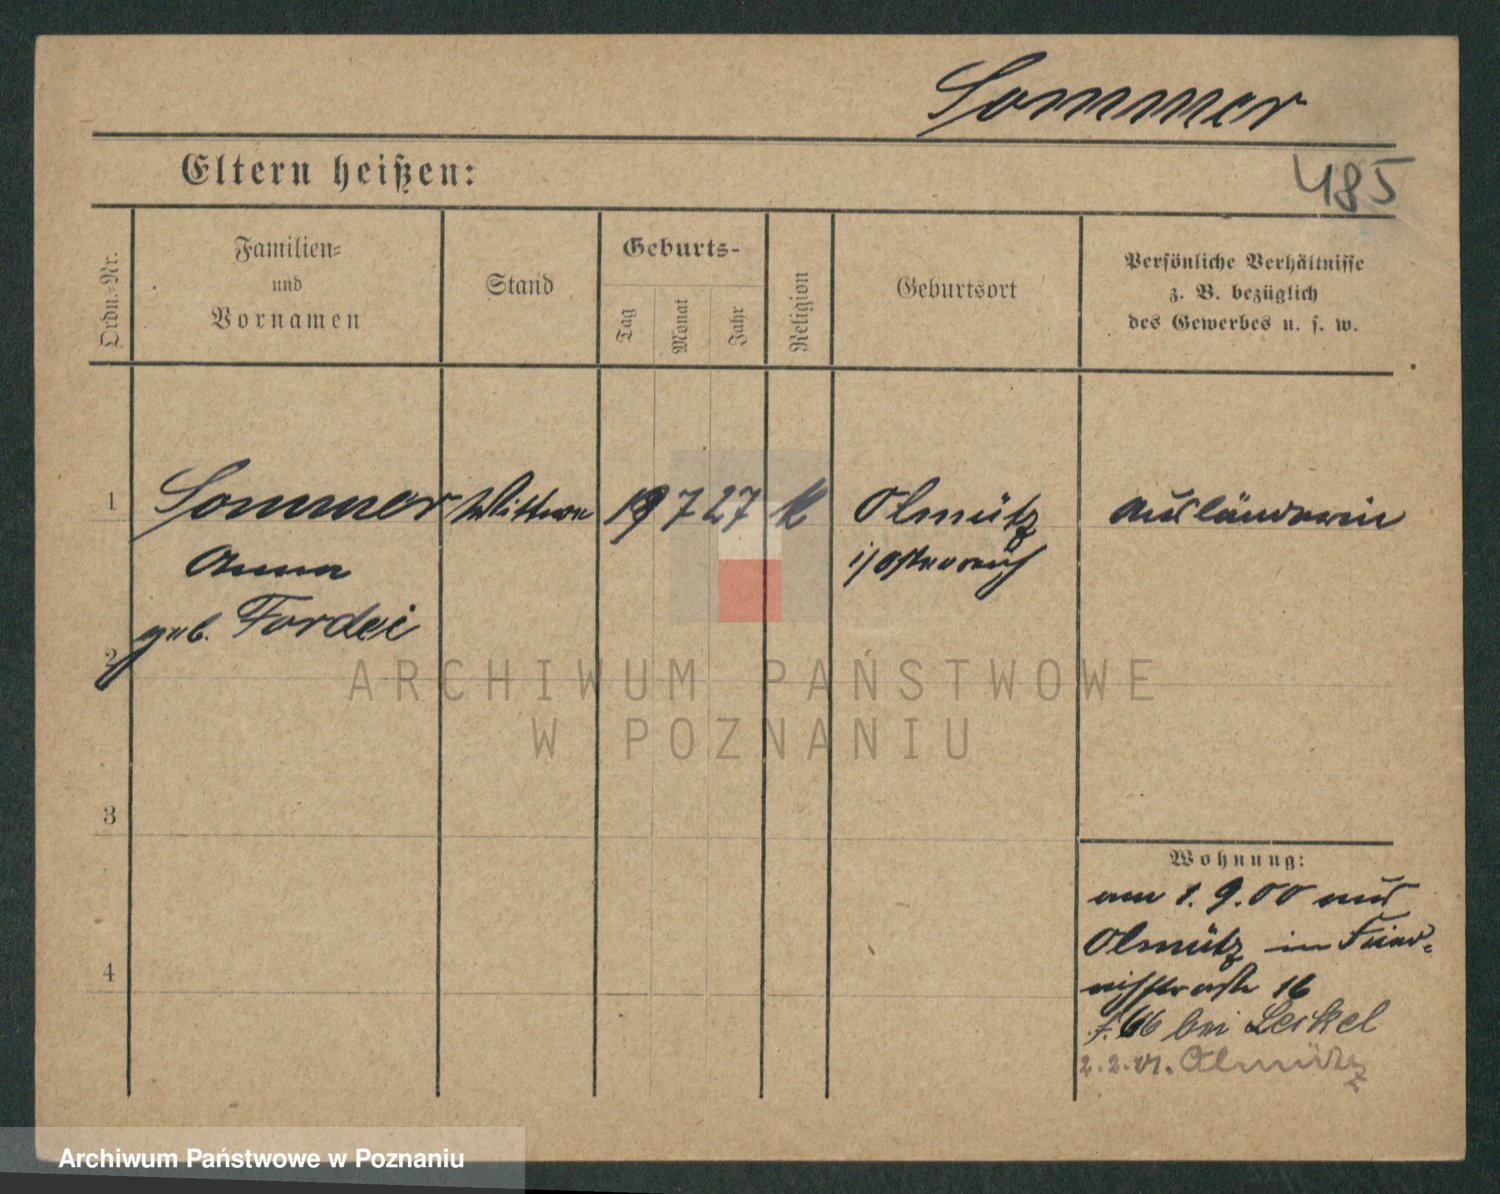 Sommer
Eltern heißen:
485
Ordn.-Nr.
Familien-
und
Vornamen
Stand
Geburts-
Tag
Monat
Jahr
Religion
Geburtsort
Persönliche Verhältnisse
z. B. bezüglich
des Gewerbes u. s. w.
1
Sommer Wittwe 19 7 27 k Olmütz Ausländerin
Anna i/Österreich
geb. Fordei
2
ARCHIWUM PAŃSTWOWE
W POZNANIU
3
Wohnung:
am 1. 9. 00 aus
Olmütz in Fried-
richstraße 16
bei Leskel
2. 2. 01. Olmütz
4
Archiwum Państwowe w Poznaniu